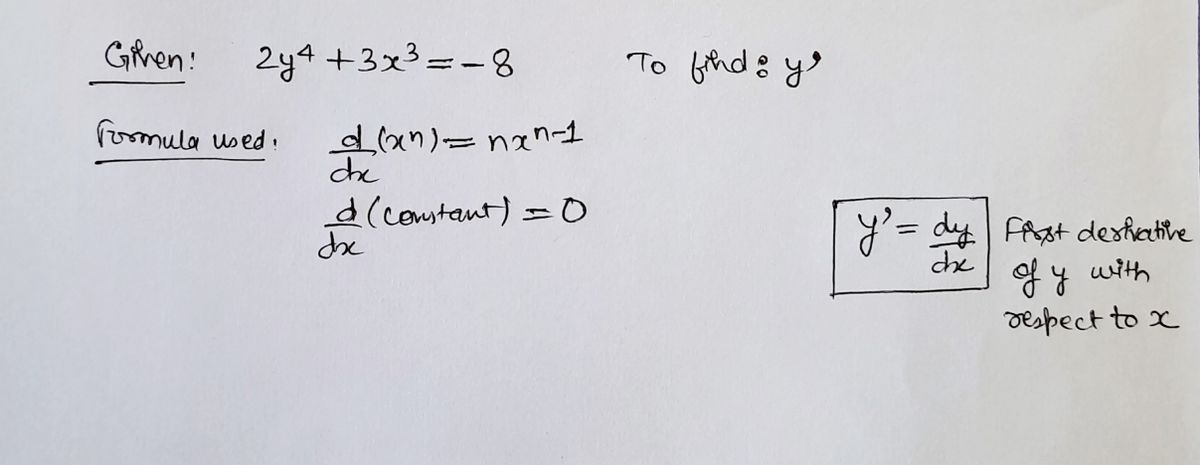 Given: 2y⁴ + 3x³ = -8 To find: y'
Formula used: d/dx (xⁿ) = nxⁿ⁻¹
d/dx (constant) = 0
y' = dy/dx First derivative
of y with
respect to x